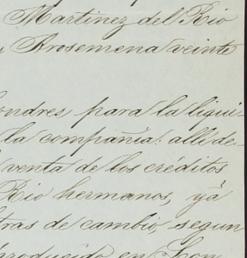 Martinez del Rio
Arosemena veinte
ondres para la liqui-
la compañia: allí de-
venta de los créditos
Rio hermanos, yá
tras de cambio segun
producido en Lon